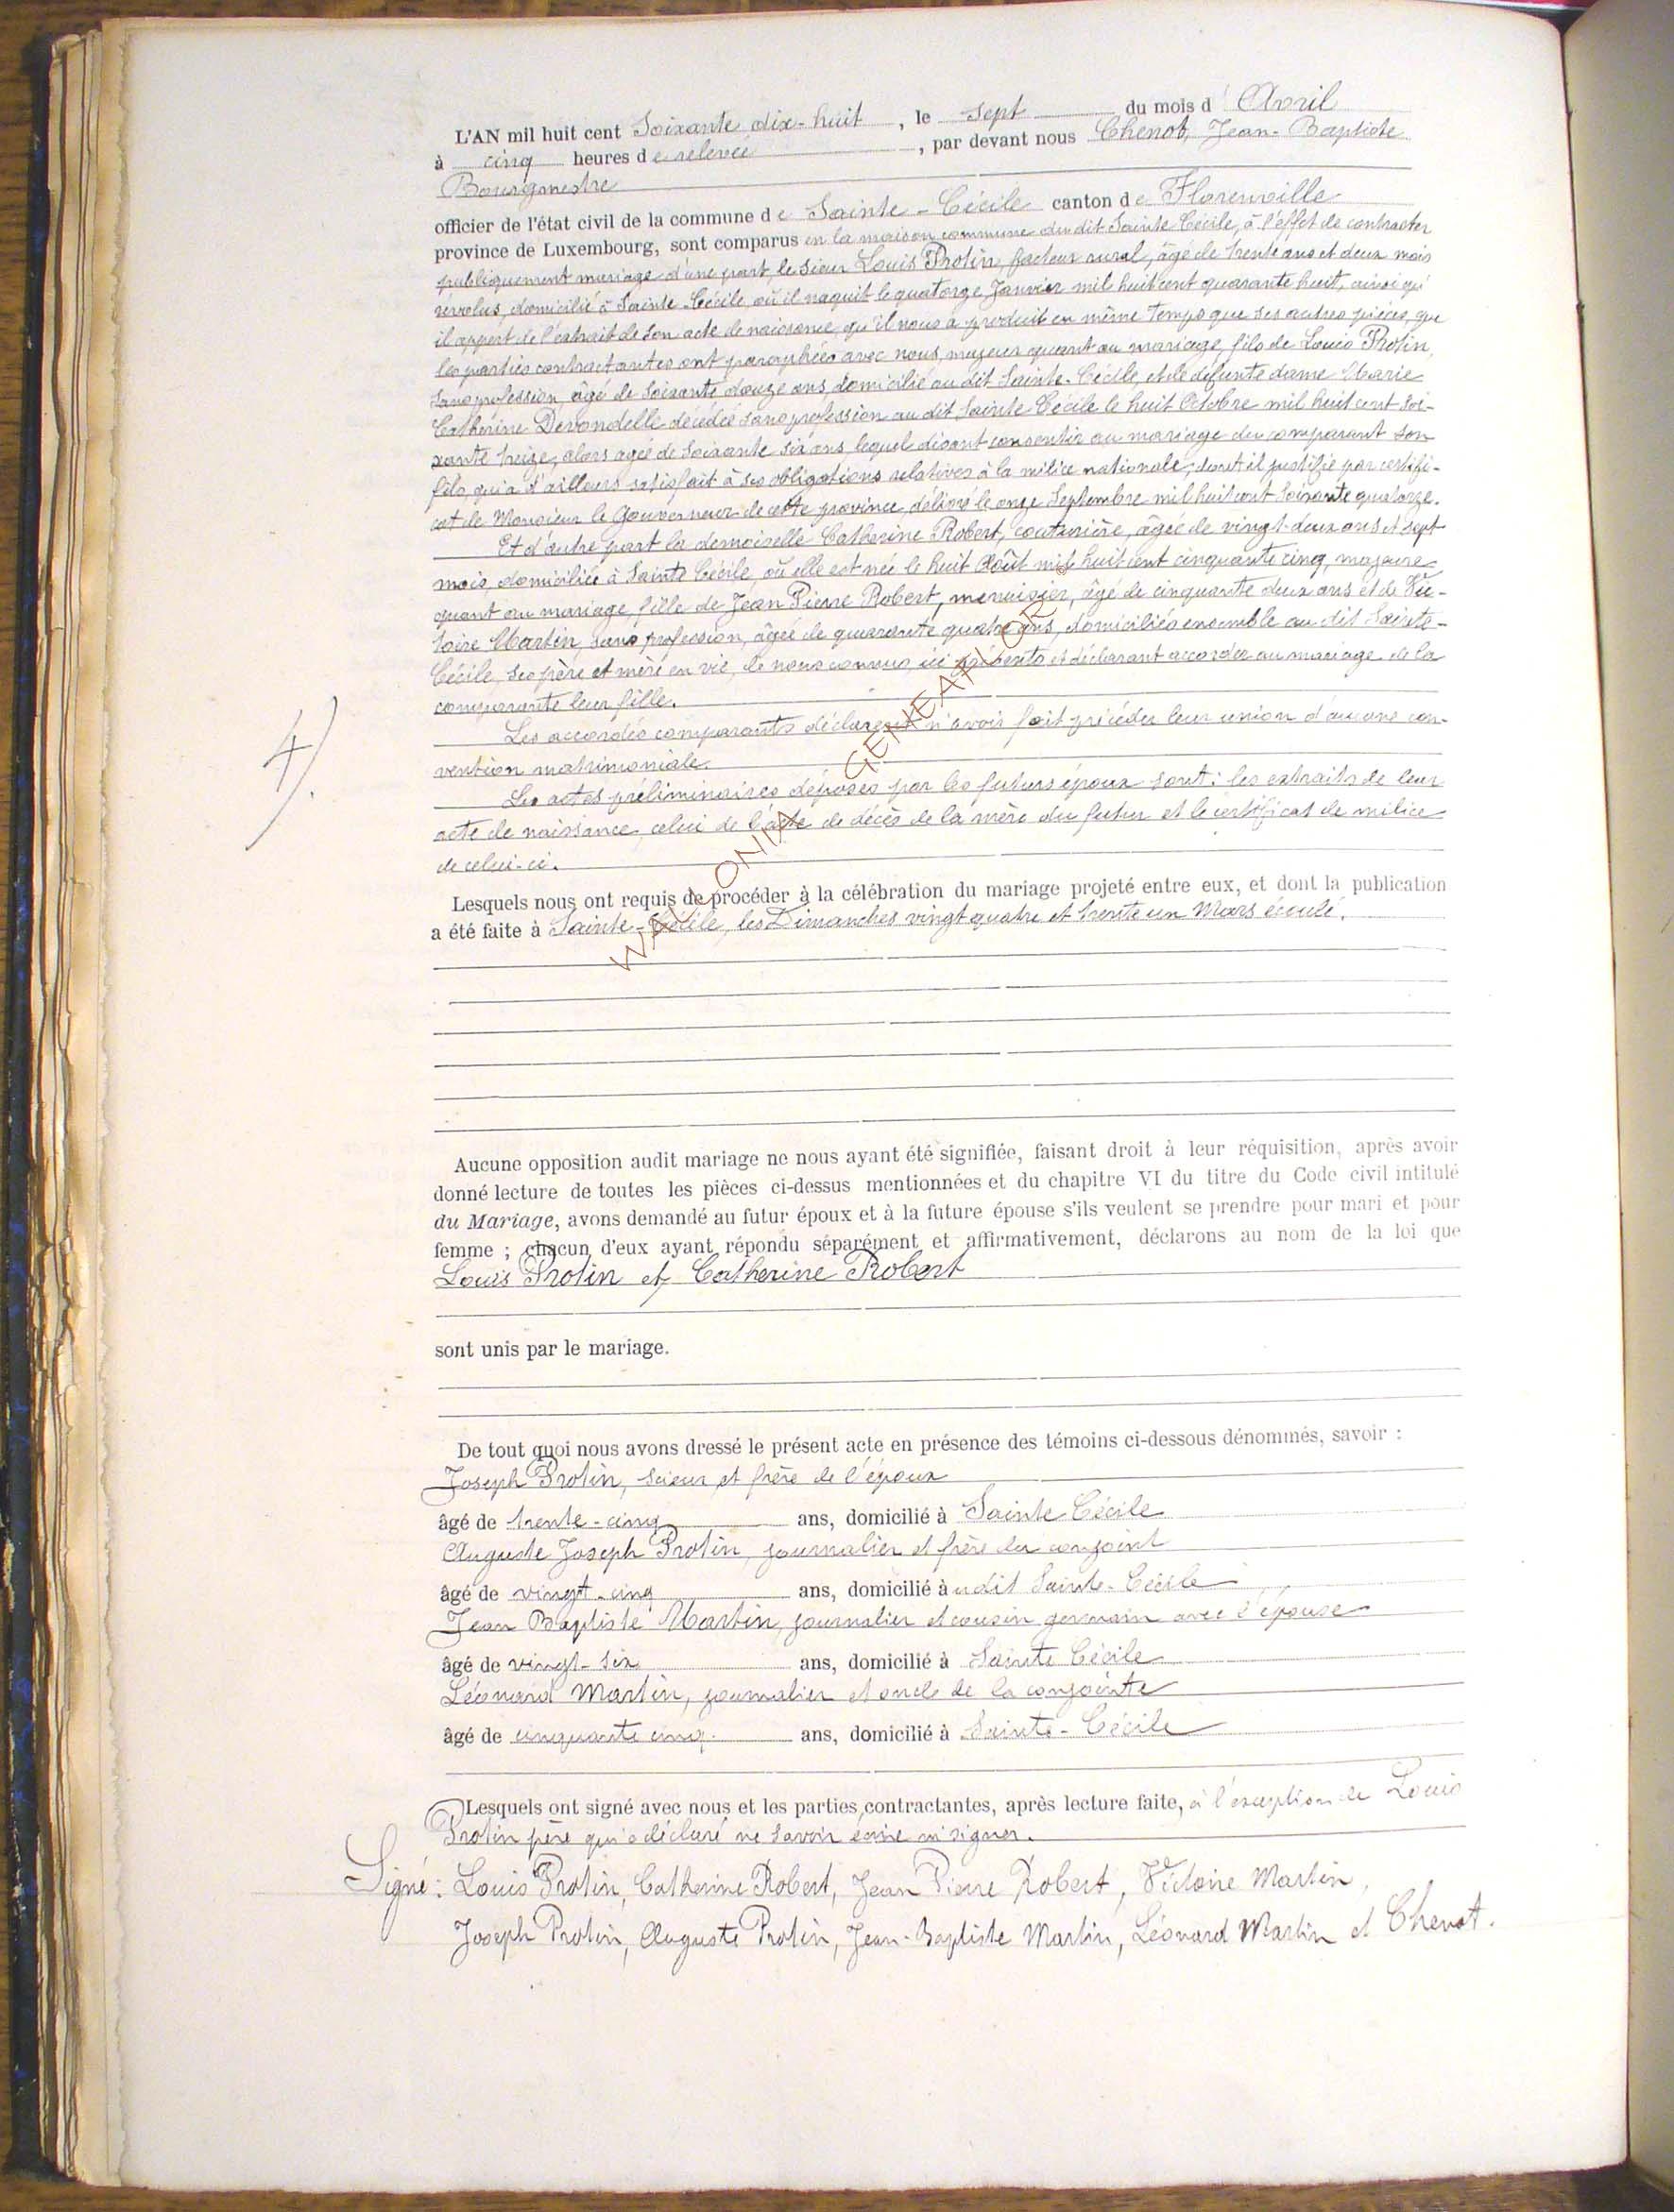 L'AN mil huit cent Soixante dix-huit, le sept du mois d'Avril
à cinq heures de relevée, par devant nous Chenot, Jean-Baptiste
Bourgmestre
officier de l'état civil de la commune de Sainte-Cécile canton de Florenville
province de Luxembourg, sont comparus en la maison commune du dit Sainte Cécile, à l'effet de contracter
publiquement mariage d'une part, le sieur Louis Protin, facteur rural, âgé de trente ans et deux mois
révolus, domicilié à Sainte-Cécile où il naquit le quatorze Janvier mil huit cent quarante huit, ainsi qu'
il appert de l'extrait de son acte de naissance qu'il nous a produit en même temps que ses autres pièces, que
les parties contractantes ont paraphées avec nous, majeur quant au mariage, fils de Louis Protin,
sans profession, âgé de soixante douze ans, domicilié au dit Sainte-Cécile, et de défunte dame Marie
Catherine Devondelle décédée sans profession au dit Sainte Cécile le huit Octobre mil huit cent soi-
xante treize, alors agée de soixante six ans lequel disant consentir au mariage du comparant son
fils, qui a d'ailleurs satisfait à ses obligations relatives à la milice nationale, dont il justifie par certifi-
cat de Monsieur le Gouverneur de cette province délivré le onze Septembre mil huit cent soixante quatorze.
Et d'autre part la demoiselle Catherine Robert, couturière, âgée de vingt-deux ans et sept
mois, domiciliée à Sainte Cécile où elle est née le huit Août mil huit cent cinquante cinq, majeure
quant au mariage, fille de Jean Pierre Robert, menuisier, âgé de cinquante deux ans et de Vic-
toire Martin, sans profession, âgée de quarante quatre ans, domiciliés ensemble au dit Sainte-
Cécile, ses père et mère en vie, de nous connus, ici présents et déclarant accorder au mariage de la
comparante leur fille.
4).
Les accordés comparants déclarent n'avoir fait précéder leur union d'aucune con-
vention matrimoniale.
Les actes préliminaires déposés par les futurs époux sont: les extraits de leur
acte de naissance, celui de l'acte de décès de la mère du futur et le certificat de milice
de celui-ci.
Lesquels nous ont requis de procéder à la célébration du mariage projeté entre eux, et dont la publication
a été faite à Sainte-Cécile, les Dimanches vingt quatre et trente un Mars écoulé.
Aucune opposition audit mariage ne nous ayant été signifiée, faisant droit à leur réquisition, après avoir
donné lecture de toutes les pièces ci-dessus mentionnées et du chapitre VI du titre du Code civil intitulé
du Mariage, avons demandé au futur époux et à la future épouse s'ils veulent se prendre pour mari et pour
femme ; chacun d'eux ayant répondu séparément et affirmativement, déclarons au nom de la loi que
Louis Protin et Catherine Robert
sont unis par le mariage.
De tout quoi nous avons dressé le présent acte en présence des témoins ci-dessous dénommés, savoir :
Joseph Protin, scieur et frère de l'époux
âgé de trente-cinq ans, domicilié à Sainte Cécile
Auguste Joseph Protin, journalier et frère du conjoint
âgé de vingt-cinq ans, domicilié à udit Sainte-Cécile
Jean Baptiste Martin, journalier et cousin germain avec l'épouse
âgé de vingt-six ans, domicilié à Sainte Cécile
Léonard Martin, journalier et oncle de la conjointe
âgé de cinquante cinq ans, domicilié à Sainte-Cécile
Lesquels ont signé avec nous et les parties contractantes, après lecture faite, à l'exception de Louis
Protin père qui a déclaré ne savoir écrire ni signer.
Signé: Louis Protin, Catherine Robert, Jean Pierre Robert, Victoire Martin,
Joseph Protin, Auguste Protin, Jean-Baptiste Martin, Léonard Martin et Chenot.